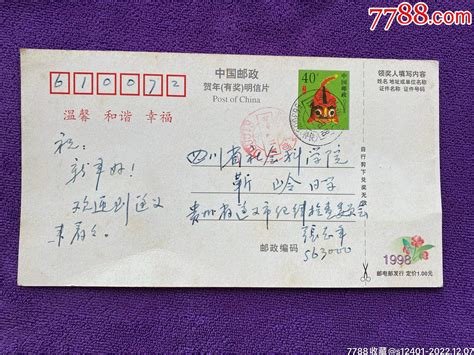 7788.com
中国邮政
贺年(有奖)明信片
Post of China
40分
中国邮政
领奖人填写内容
姓名 地址或单位名称
证件名称 证件号码
610072
温馨 和谐 幸福
祝:
新年好!
欢迎到遵义
来
四川省社会科学院
靳岭
贵州省遵义市纪律检查委员会
563000
邮政编码
自行剪下兑奖无效
1998
邮电部发行 定价1.00元
7788收藏@s12401-2022.12.07